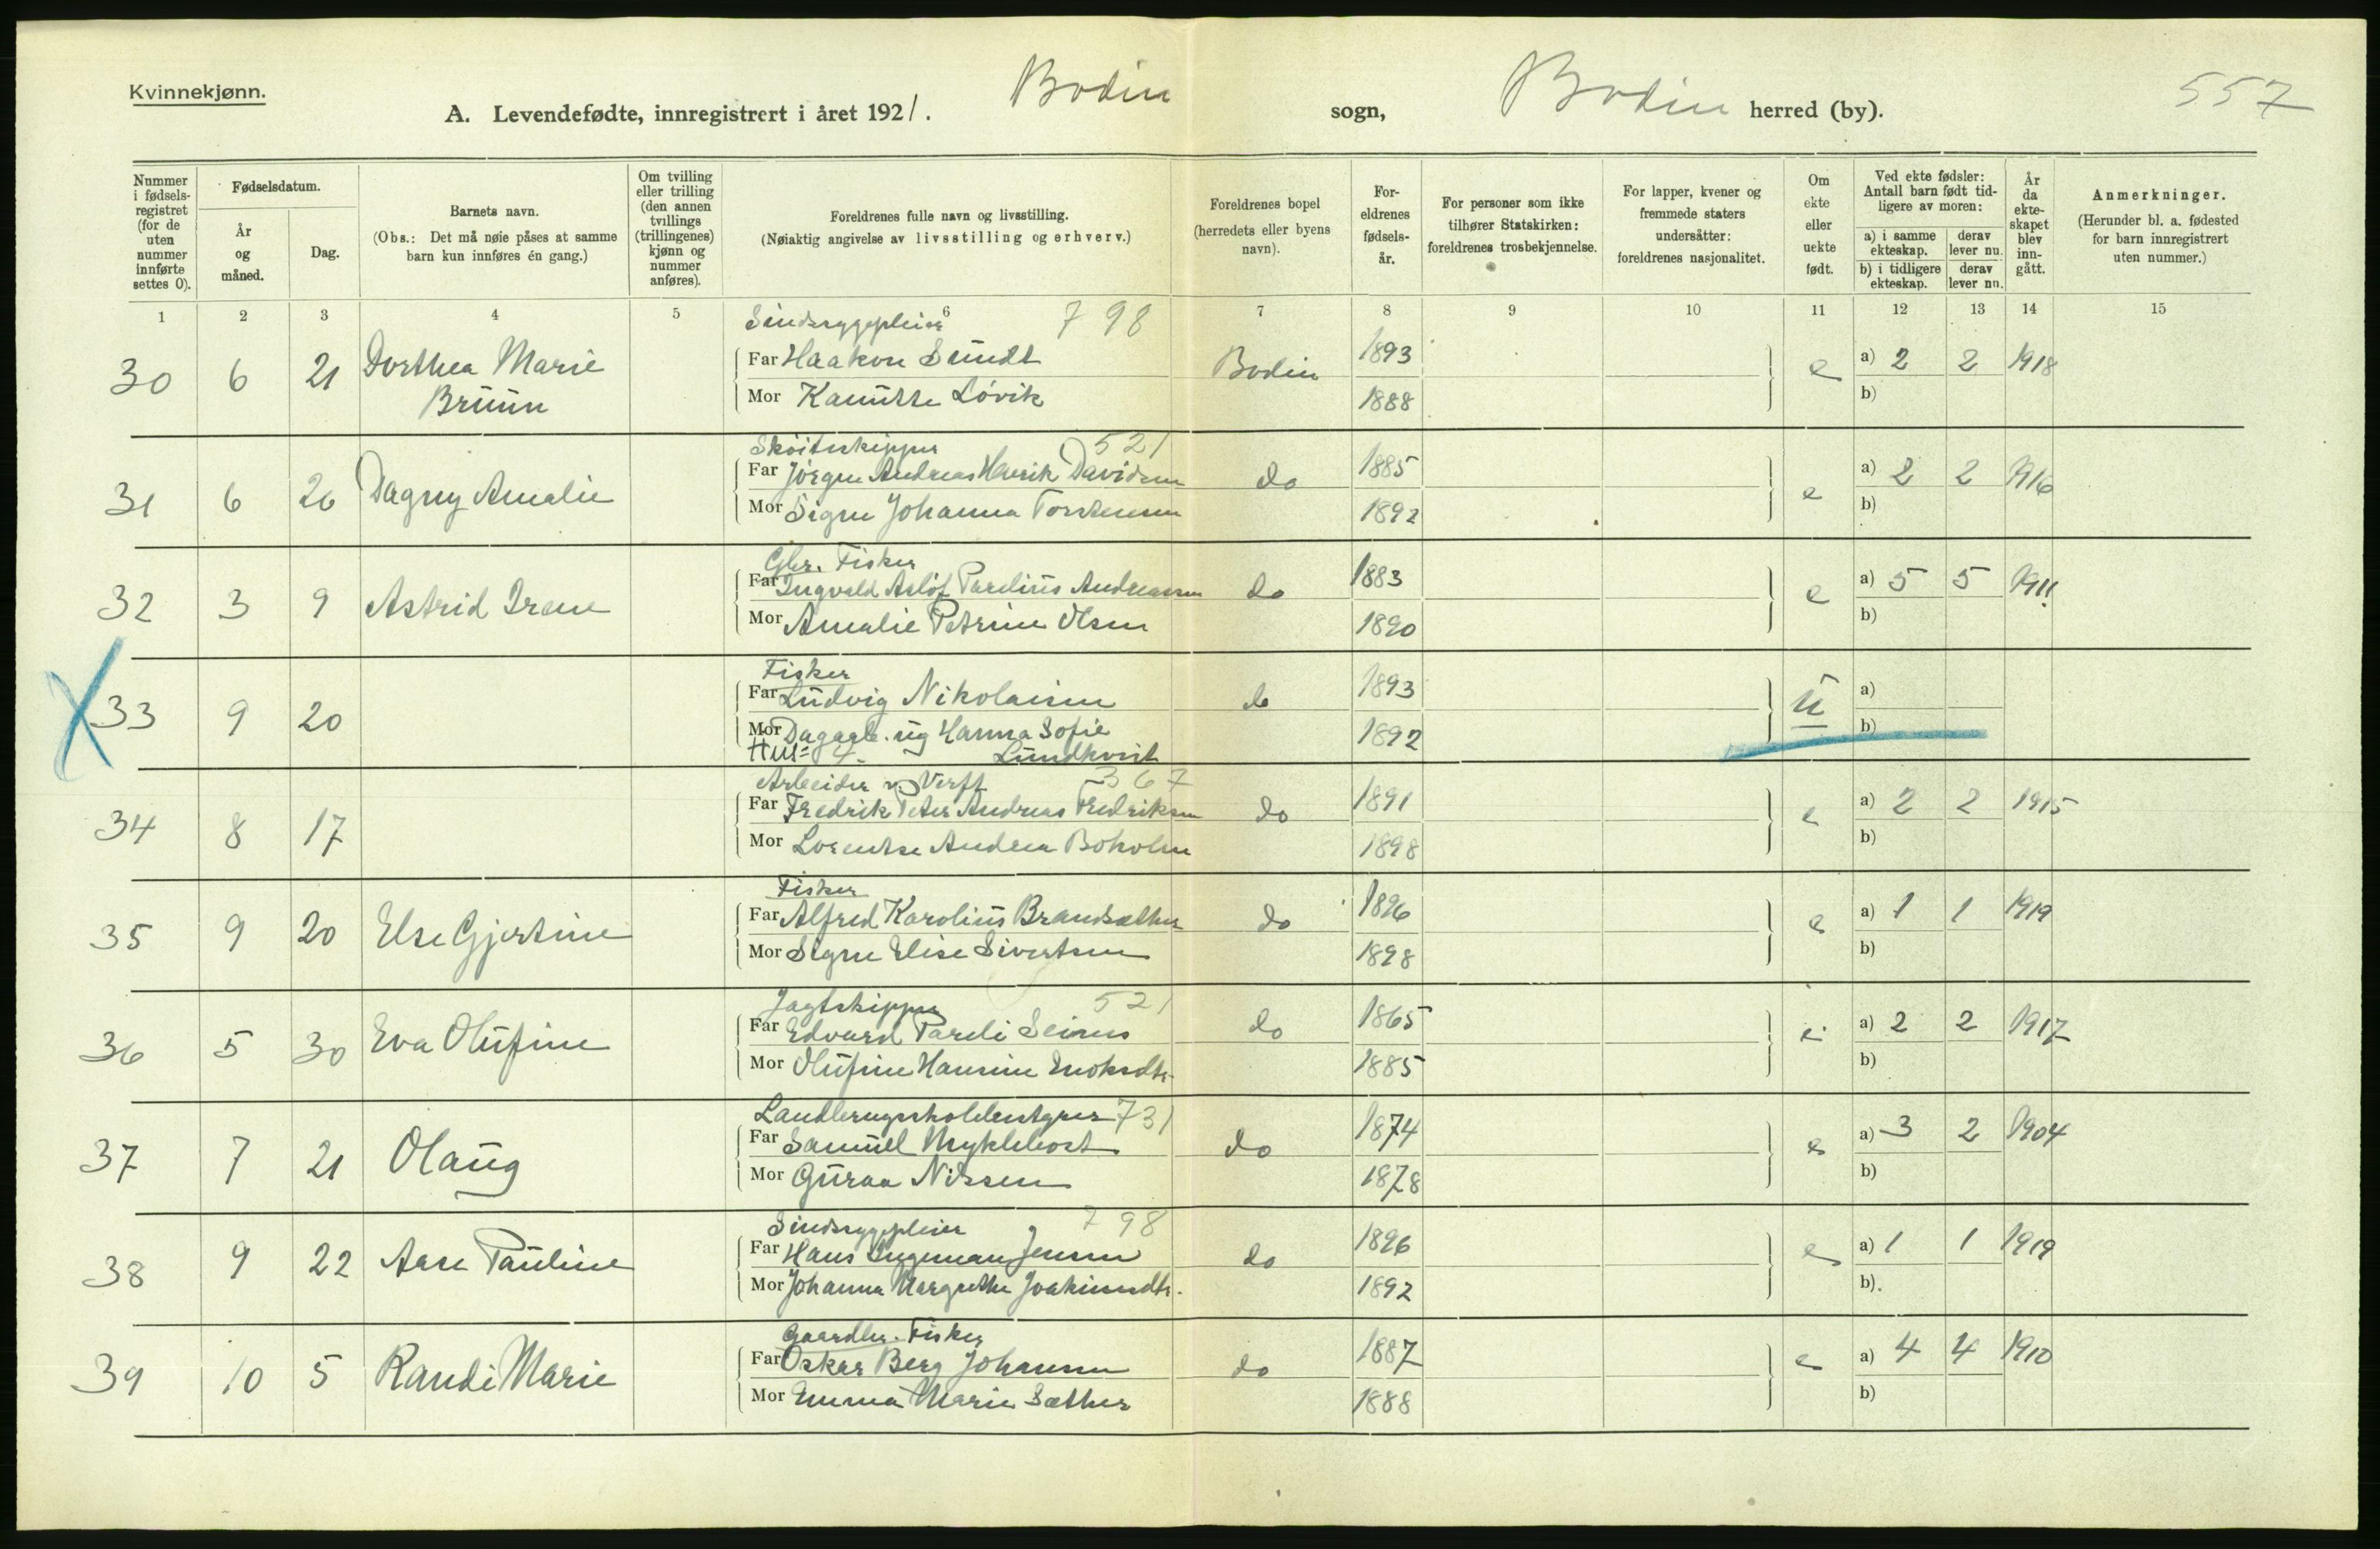 Kvinnekjønn.
A. Levendefødte, innregistrert i året 1921. Bodin sogn, Bodin herred (by). 557
Nummer i fødselsregistret (for de uten nummer innførte settes 0).
Fødselsdatum.
År og måned.
Dag.
Barnets navn.
(Obs.: Det må nøie påses at samme barn kun innføres én gang.)
Om tvilling eller trilling (den annen tvillings (trillingenes) kjønn og nummer anføres).
Foreldrenes fulle navn og livsstilling.
(Nøiaktig angivelse av livsstilling og erhverv.)
Foreldrenes bopel (herredets eller byens navn).
Foreldrenes fødselsår.
For personer som ikke tilhører Statskirken: foreldrenes trosbekjennelse.
For lapper, kvener og fremmede staters undersåtter: foreldrenes nasjonalitet.
Om ekte eller uekte født.
Ved ekte fødsler: Antall barn født tidligere av moren:
a) i samme ekteskap.
derav lever nu.
b) i tidligere ekteskap.
derav lever nu.
År da ekteskapet blev inngått.
Anmerkninger.
(Herunder bl. a. fødested for barn innregistrert uten nummer.)
1 2 3 4 5 6 7 8 9 10 11 12 13 14 15
Sindssygepleier 798
30 6 21 Dorthea Marie Far Haakon Sundt Bodin 1893 e a) 2 2 1918
Bruun Mor Kanutte Lövik 1888 b)
Skøiteskipper 521
31 6 26 Dagny Amalie Far Jörgen Andreas Henrik Davidsen do 1885 e a) 2 2 1916
Mor Signe Johanna Torstensen 1892 b)
Gbr. Fisker
32 3 9 Astrid Irene Far Ingvald Asløf Parelius Andreassen do 1883 e a) 5 5 1911
Mor Amalie Petrine Olsen 1890 b)
Fisker
33 9 20 Far Ludvig Nikolaisen do 1893 u a)
Mor Dagarb. ug Hanna Sofie 1892 b)
Lundkvist
Arbeider v Verft 367
34 8 17 Far Fredrik Peter Andreas Fredriksen do 1891 e a) 2 2 1915
Mor Lorentse Andrea Boholm 1898 b)
Fisker
35 9 20 Else Gjertine Far Alfred Karolius Brandsæther do 1896 e a) 1 1 1919
Mor Signe Elise Sivertsen 1898 b)
Jagtskipper 521
36 5 30 Eva Olufine Far Edvard Pareli Seines do 1865 e a) 2 2 1917
Mor Olufine Hansine Enoksdtr. 1885 b)
731
37 7 21 Olaug Far Samuel Myklebost do 1874 e a) 3 2 1904
Mor Guraa Nilssen 1878 b)
Sindssygepleier 798
38 9 22 Aase Pauline Far Hans Ingeman Jensen do 1896 e a) 1 1 1919
Mor Johanna Margrethe Joakimsdtr. 1892 b).
Gaardbr. Fisker
39 10 5 Randi Marie Far Oskar Berg Johansen do 1887 e a) 4 4 1910
Mor Emma Marie Sæther 1888 b)